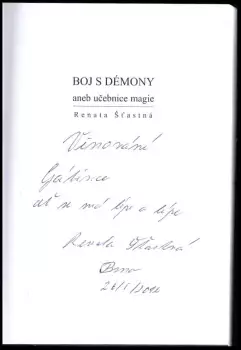 BOJ S DÉMONY
aneb učebnice magie
Renata Šťastná
Věnování
ať se má lépe a lépe
Renata Šťastná
Brno